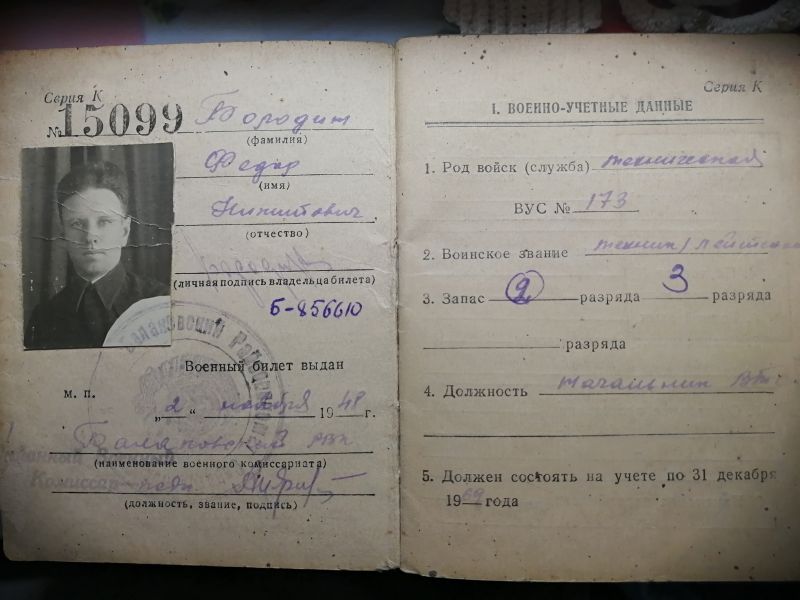 Серия К
№ 15099 Бородин
(фамилия)
Федор
(имя)
Никитович
(отчество)
(личная подпись владельца билета)
Б-856610
Балаковский Рай
Военный билет выдан
м. п.
„2“ ноября 1948 г.
Балаковский РВК
(наименование военного комиссариата)
Военный
Комиссар
(должность, звание, подпись)
Серия К
I. ВОЕННО-УЧЕТНЫЕ ДАННЫЕ
1. Род войск (служба) техническая
ВУС № 173
2. Воинское звание техник/лейтенант
3. Запас 2 разряда 3 разряда
разряда
4. Должность начальник
5. Должен состоять на учете по 31 декабря
1969 года